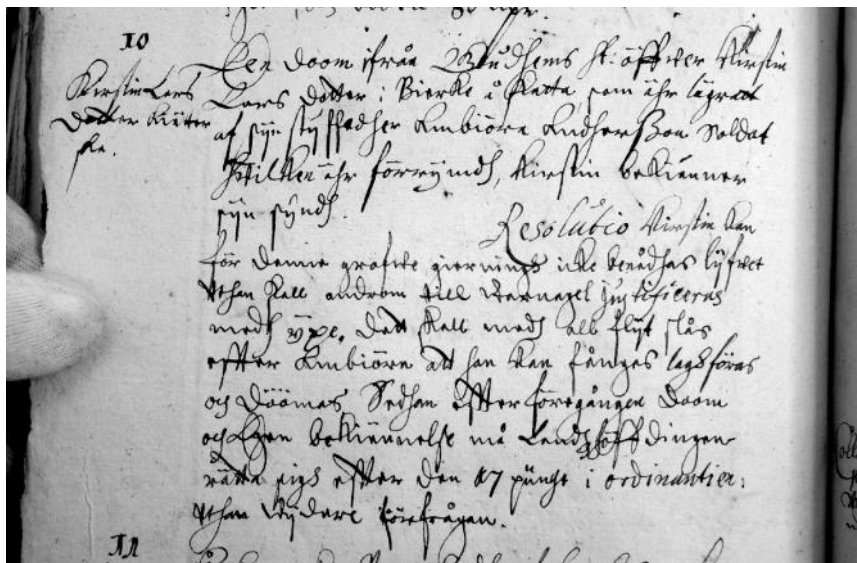 10
Kirstin Lars
Dotter
Een doom ifrån Wudhems h: öffwer Kirstin
Lars dotter i Bierke å Slätta, som ähr lägradt
af sijn styffadher Ambiörn Andherßon Soldat
hwilken ähr förrymdh, Kirstin bekiänner
sijn syndh.
Resolutio Kirstin kan
för denne grofwe giernings icke benådhas lyfwet
uthan skall androm till warnagel justificeras
medh ÿxe. Dett skall medh all flijt slås
effter Ambiörn att han kan fånges lagföras
och döömas, Sedhan effter föregången doom
och Egen bekiännelse må Landzhöffdingen
rätta sigh effter den 17 punht i ordinantien:
uthan wijdare förfrågan.
11